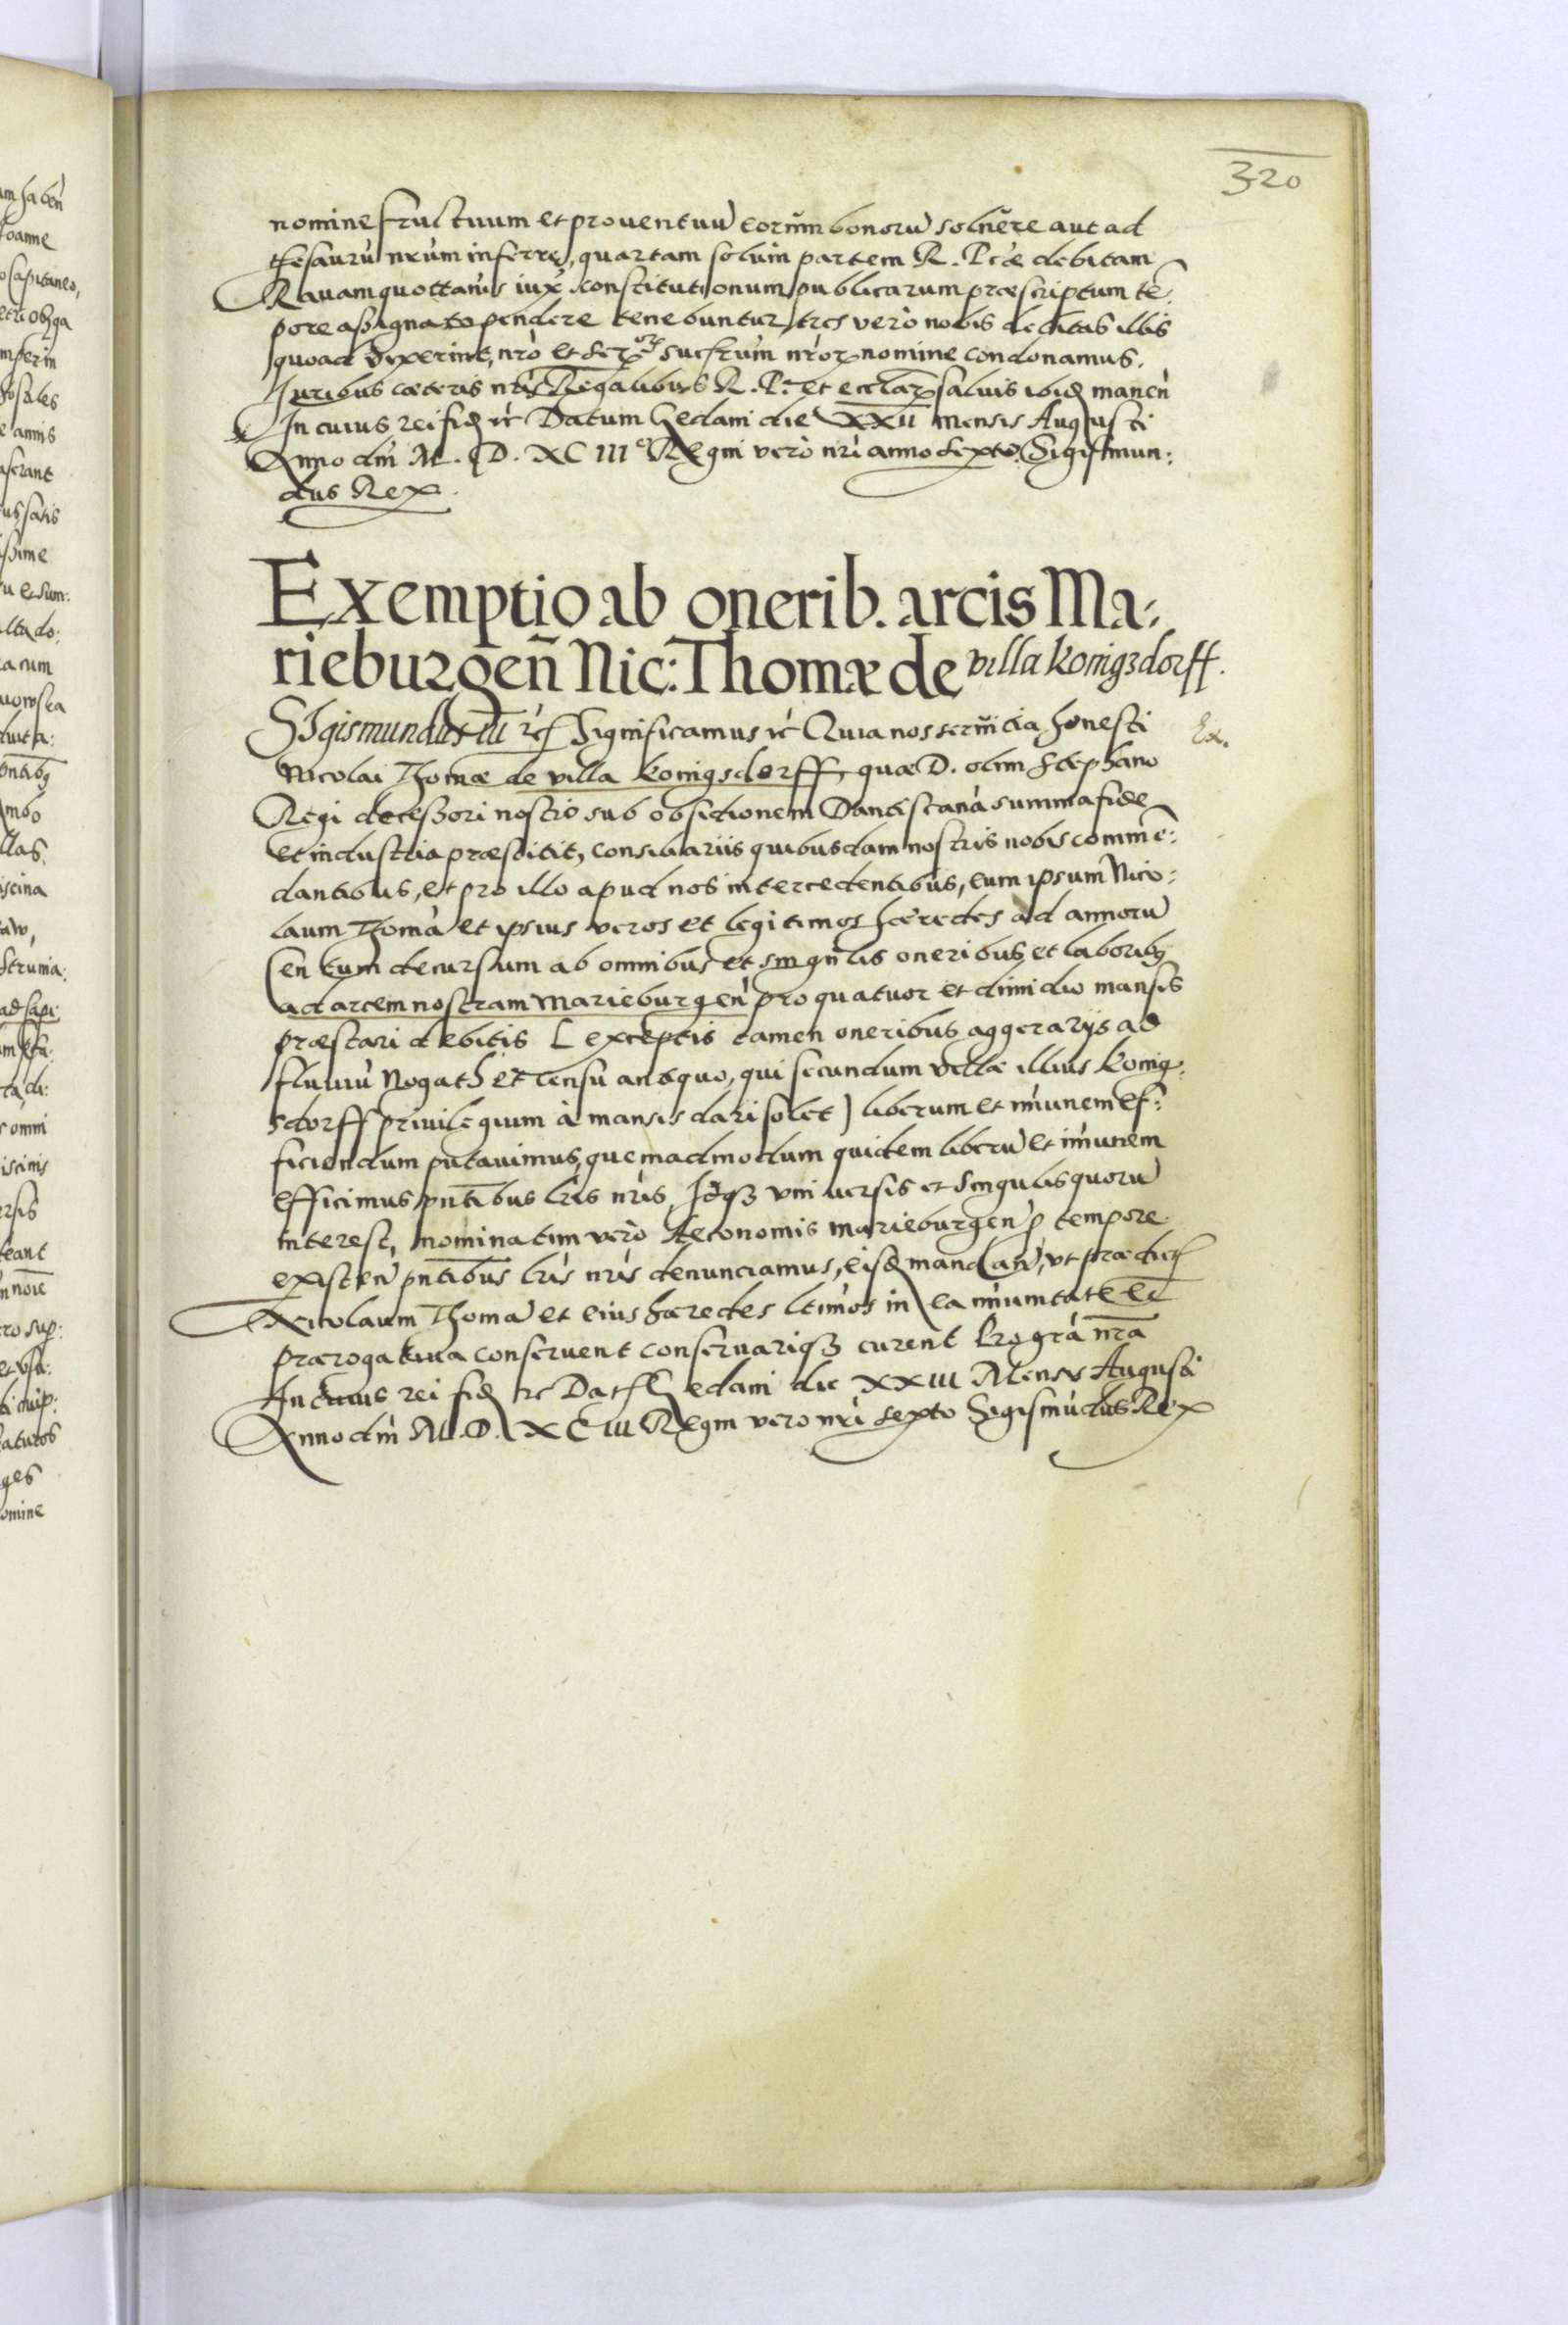 320
nomine fructuum et prouentuũ eorum bonorũ soluere aut ad
thesaurũ nrũm inferre, quartam solum partem R. P. debitam
Rauam quottanis iux constitutionum publicarum præscriptum tẽ
pore assignato pendere tenebuntur, tres verò nobis debitas illis
quoad vixerint, nrò et ser succrum nror nomine condonamus.
Juribus cæteris nris Regalibus R. P. et ecclar saluis ibid manen
In cuius rei fid rc Datum Gedani die XXII mensis Augusti
Anno dni M. D. XCIII Regni verò nri anno sexto. Sigismun:
dus Rex.
Exemptio ab onerib. arcis Ma:
rieburgeñ Nic: Thomæ de villa Konigsdorff.
SIgismundus III rc Significamus rc Quia nos seruitia honesti
Ex.
Nicolai Thomæ de villa Konigsdorff, quæ D. olim Stephano
Regi decessori nostro sub obsidionem Dantiscanã summa fide
et industria præstitit, consiliariis quibusdam nostris nobis commẽ:
dantibus, et pro illo apud nos intercedentibus, eum ipsum Nico:
laum Thomã et ipsius veros et legitimos hæredes ad annorũ
Centum decursum ab omnibus et singulis oneribus et laborib9
ad arcem nostram Marieburgen pro quatuor et dimidio mansis
præstari debitis [ exceptis tamen oneribus aggerarijs ad
fluuiũ Nogath et censu antiquo, qui secundum villæ illius Konig:
sdorff priuilegium à mansis dari solet ] liberum et imunem ef:
ficiendum putauimus, quemadmodum quidem liberũ et imunem
efficimus pntibus lris nris. Idq3 vniuersis et singulis quorũ
interest, nominatim verò Aeconomis marieburgen p tempore
existen pntibus lris nris denunciamus, eisd mandan, vt prædict
Nicolaum Thomã et eius hæredes ltimos in ea imunitate et
prærogatiua conseruent conseruariq3 curent pro grã nrã
In cuius rei fid rc Dat Gedani die XXIII Mensis Augusti
Anno dni M. D. XCIII Regni vero nri sexto Sigismũdus Rex